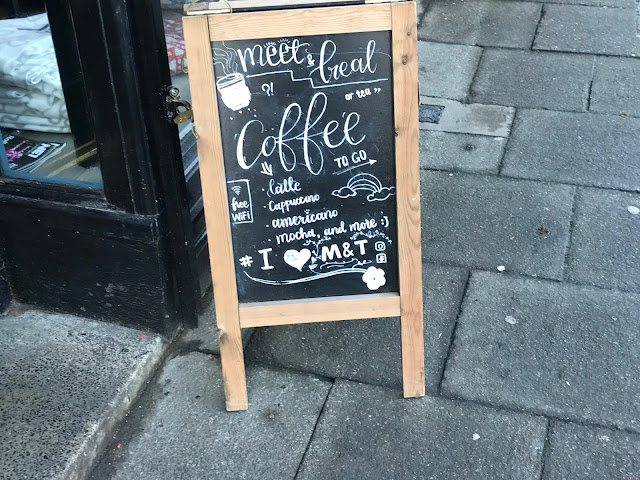 meet & breal
?!
or tea "
Coffee
TO GO
free
WiFi
· latte
· Cappuccino
· americano
· mocha, and more :)
# I M&T